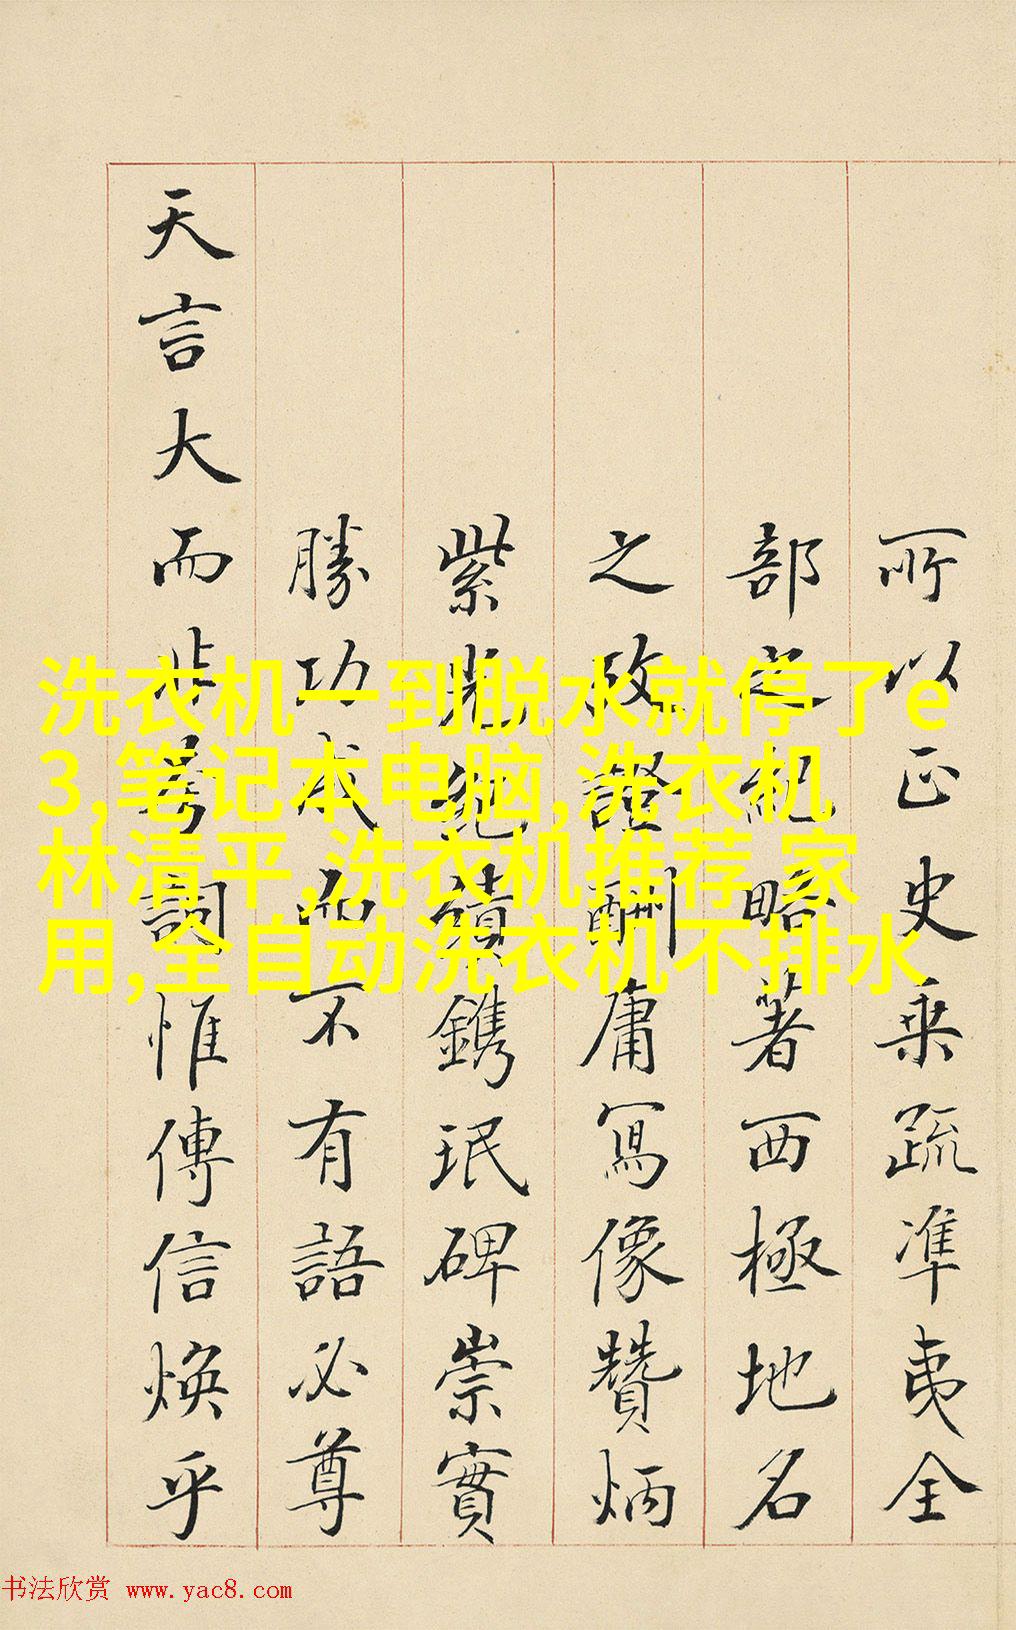 所以正史乘疏準夷全
部之紀略著西極地名
之攷證酬庸寫像贊炳
紫光絩績鐫珉碑崇實
勝功成而不有語必尊
天言大而非夸詞惟傳信煥乎
洗衣机一到脱水就停了e
3,笔记本电脑,洗衣机
林清平,洗衣机推荐 家
用,全自动洗衣机不排水
书法欣赏 www.yac8.com